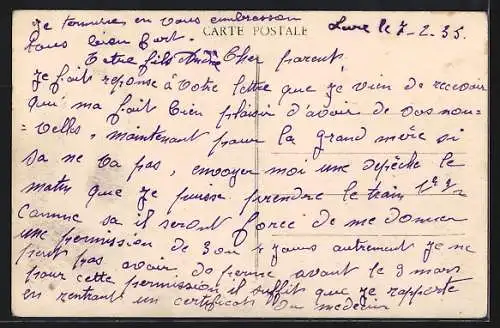 Je termines en vous embrassan
tous bien fort.
Votre fils André
CARTE POSTALE
Lure le 7-2.35.
Cher parent,
Je fait reponse à votre lettre que je vien de recevoir
qui ma fait bien plaisir d'avoir de vos nou-
-velles, maintenant pour la grand mère si
sa ne va pas, envoyer moi une depêche le
matin que je puisse prendre le train
Comme sa il seront force de me donner
une permission de 3 ou 4 jours autrement je ne
peut pas avoir de perme avant le 9 mars
pour cette permission il suffit que je rapporte
en rentrant un certificat du medecin